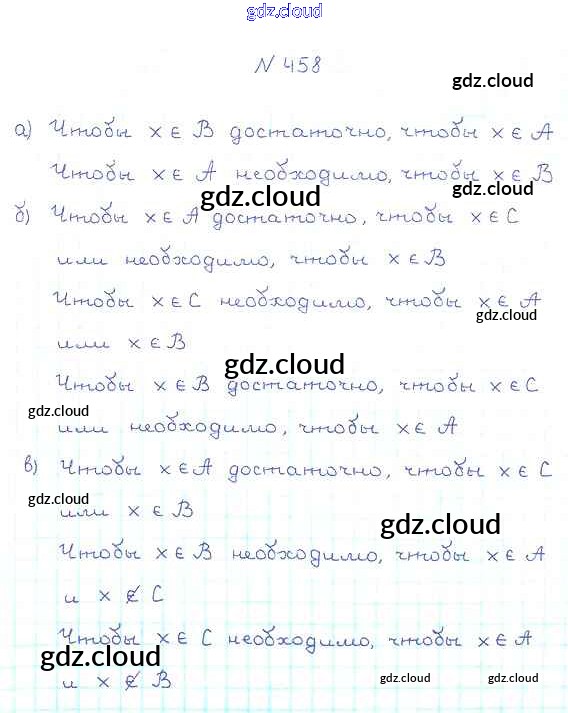 gdz.cloud
N 458
gdz.cloud
а) Чтобы x ∈ B достаточно, чтобы x ∈ A
Чтобы x ∈ A необходимо, чтобы x ∈ B
gdz.cloud
gdz.cloud
б) Чтобы x ∈ A достаточно, чтобы x ∈ C
или необходимо, чтобы x ∈ B
Чтобы x ∈ C необходимо, чтобы x ∈ A
gdz.cloud
или x ∈ B
gdz.cloud
Чтобы x ∈ B достаточно, чтобы x ∈ C
gdz.cloud
или необходимо, чтобы x ∈ A
в) Чтобы x ∈ A достаточно, чтобы x ∈ C
gdz.cloud
или x ∈ B
gdz.cloud
Чтобы x ∈ B необходимо, чтобы x ∈ A
и x ∉ C
Чтобы x ∈ C необходимо, чтобы x ∈ A
gdz.cloud
и x ∉ B
gdz.cloud
gdz.cloud